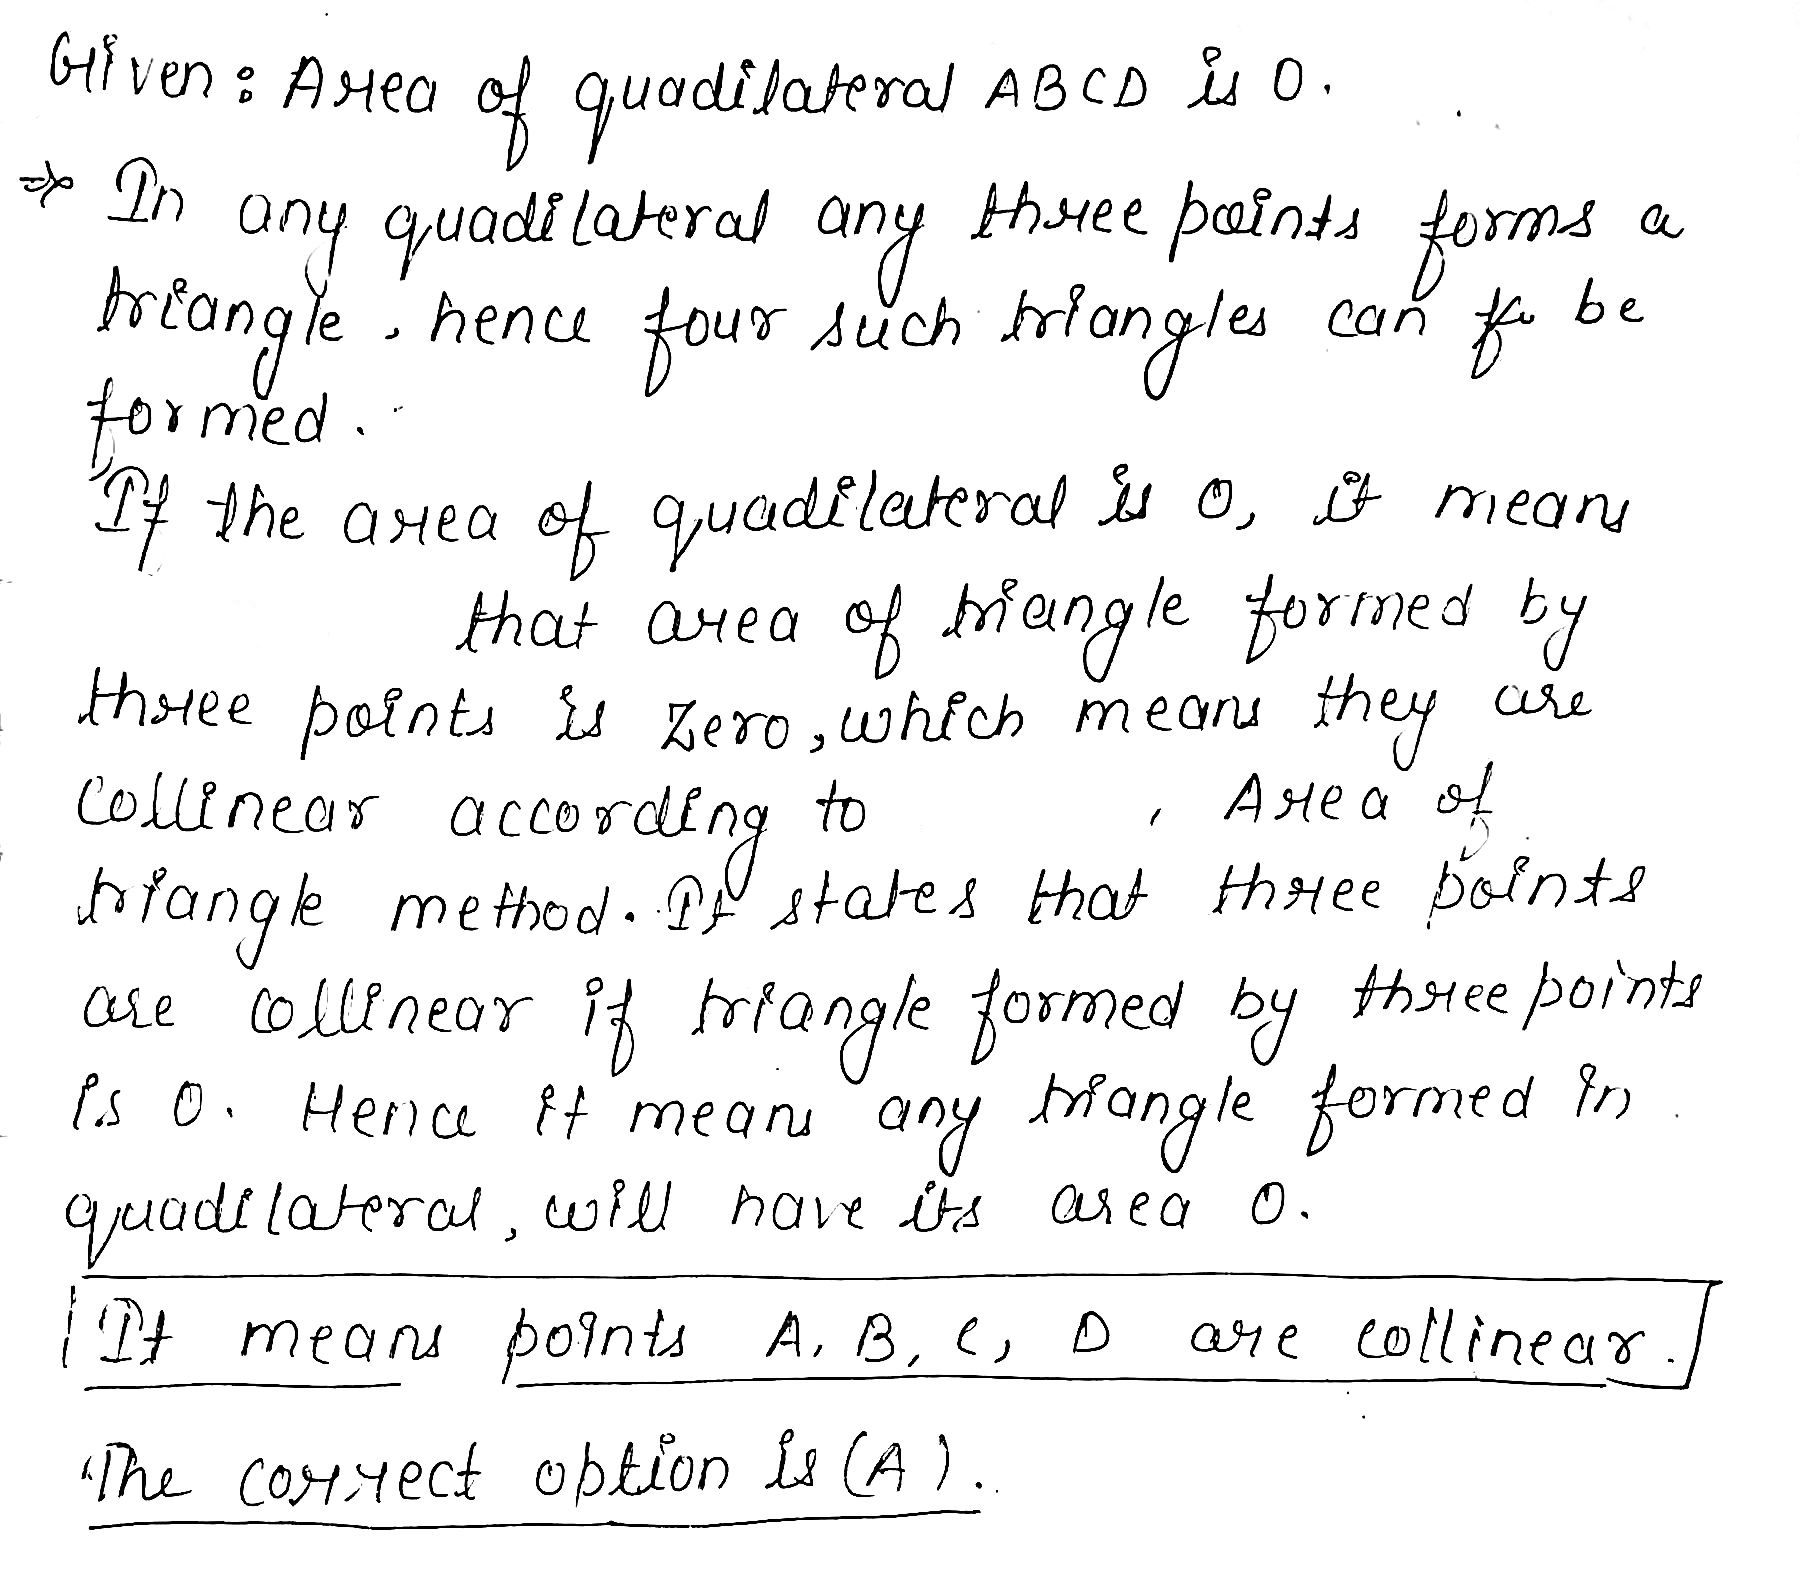 Given : Area of quadilateral ABCD is 0.
⇒ In any quadilateral any three points forms a
triangle, hence four such triangles can be
formed.
If the area of quadilateral is 0, it means
that area of triangle formed by
three points is zero, which means they are
collinear according to , Area of
triangle method. It states that three points
are collinear if triangle formed by three points
is 0. Hence it means any triangle formed in
quadilateral, will have its area 0.
It means points A, B, C, D are collinear.
The correct option is (A).